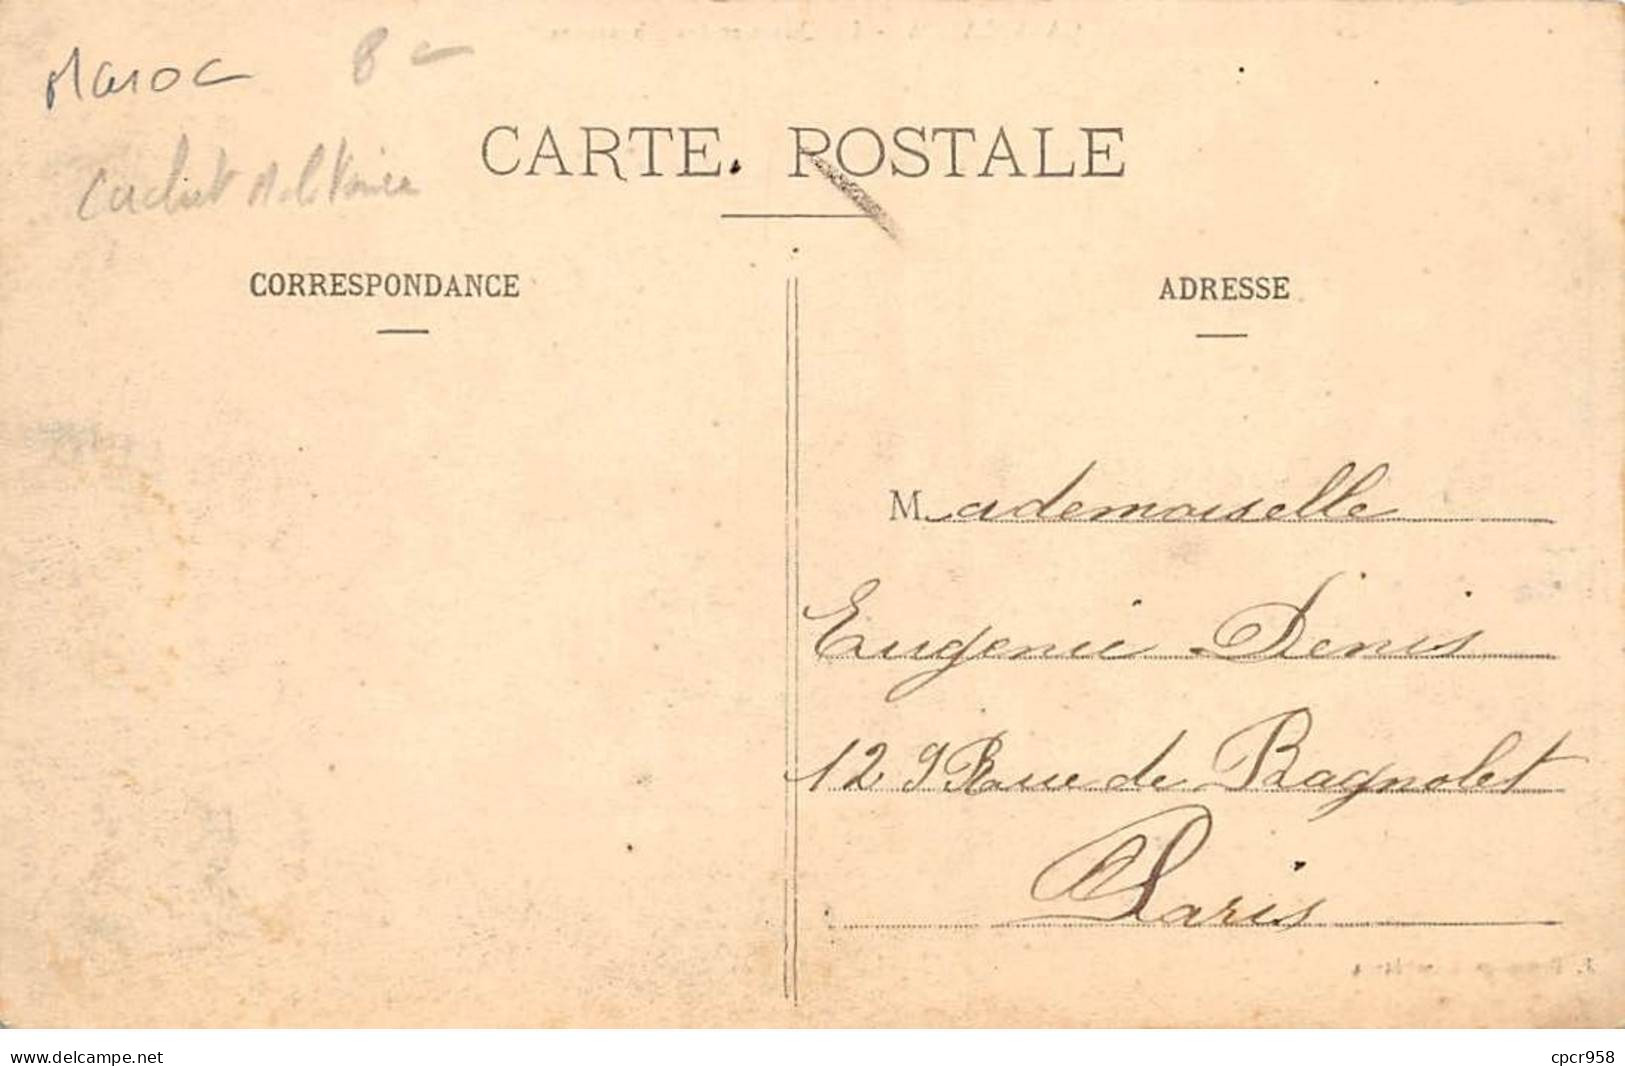 Maroc 8
Cachet Militaire
CARTE POSTALE
CORRESPONDANCE
ADRESSE
Mademoiselle
Eugenie Denis
129 Rue de Bagnolet
Paris
www.delcampe.net
cpcr958